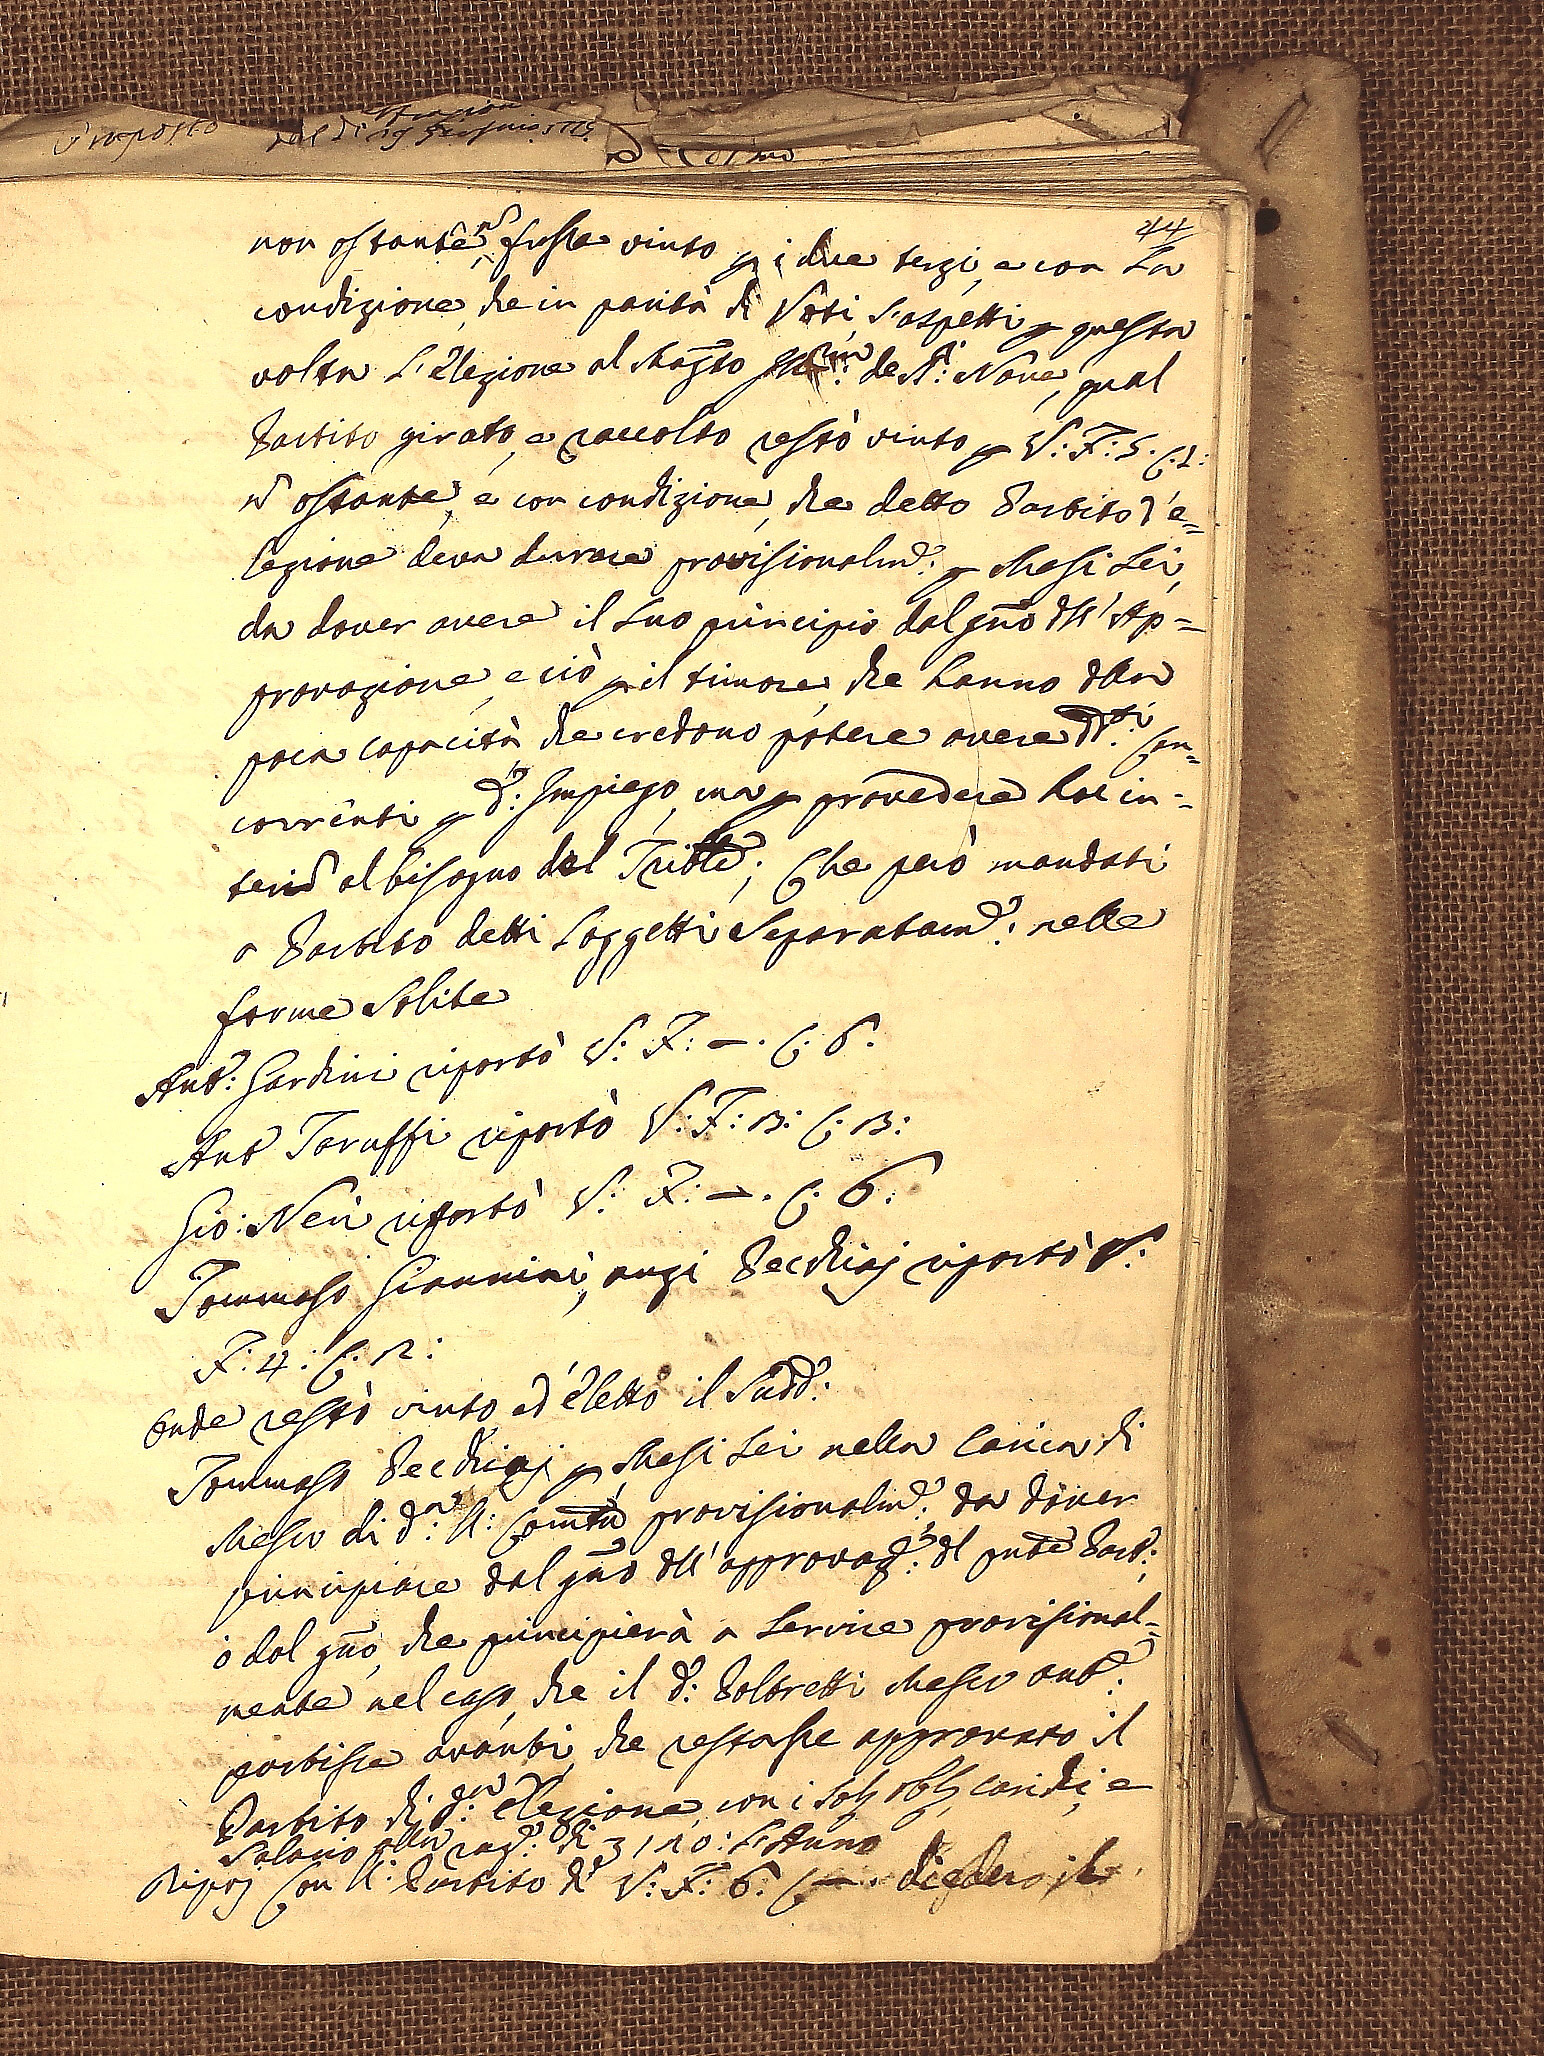 imposto
44
non ostante, fusse vinto p i due terzi, e con La
condizione, che in parità di Voti, s'aspetti p questa
volta L'Elezione al Mag̃to de SS: Nove, qual
Partito girato, e raccolto restò vinto p V: F: 5. C: 1:
nͦ ostante, e con condizione, che detto Partito d'e=
lezione deva durare provisionalmᵉ: p Mesi Sei,
da dover avere il suo principio dal gñō dll' Ap=
provazione, e ciò p il timore, che hanno dlla
poca capacità che credono potere avere dᵗⁱ: Con=
correnti p dᵒ: Impiego, ma p provedere hac in=
terim al bisogno del Tribl̃e; Che però mandati
a Partito detti Soggetti Separatamᵉ: nelle
forme Solite
Antᵒ: Gardini riportò V: F: —. C: 6.
Antᵒ Taruffi riportò V: F: 3: C: 3:
Gio: Neri riportò V: F: —. C: 6:
Tommaso Giannini, anzi Pecchiaj riportò V:
F: 4: C: 2:
Onde restò vinto ed Eletto il Sudᵒ:
Tommaso Pecchiaj p Mesi Sei nella Carica di
Messo di dᵃ: N: Com̃tà provisionalmᵉ: da dover
principiare dal gñō dll' approvazᵉ: dl pñte Partᵒ:
ò dal gñō, che principierà a Servire provisional=
mente nel caso, che il dᵒ: Poltretti Messo antᵒ:
partisse avanti, che restasse approvato il
Partito di dᵃ: Elezione, con i Soliti obblighi, carichi, e
Salario alla ragᵉ: di L'Anno
Con N: Partito dⁱ V: F: 6: C —.